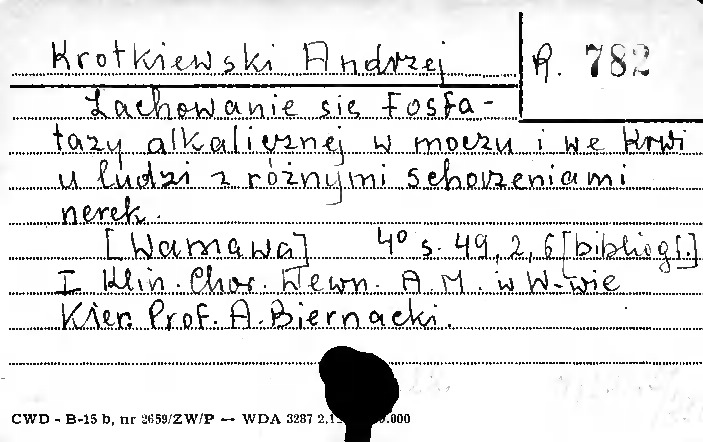 Krotkiewski Andrzej R. 782
Zachowanie się fosfa-
tazy alkalicznej w moczu i we krwi
u ludzi z różnymi schorzeniami
nerek.
[Warszawa] 4º s. 49, 2, 6 [bibliogr.]
I Klin. Chor. Wewn. A. M. w W-wie
Kier. Prof. A. Biernacki.
CWD - B-15 b, nr 2659/ZW/P — WDA 3287 .000